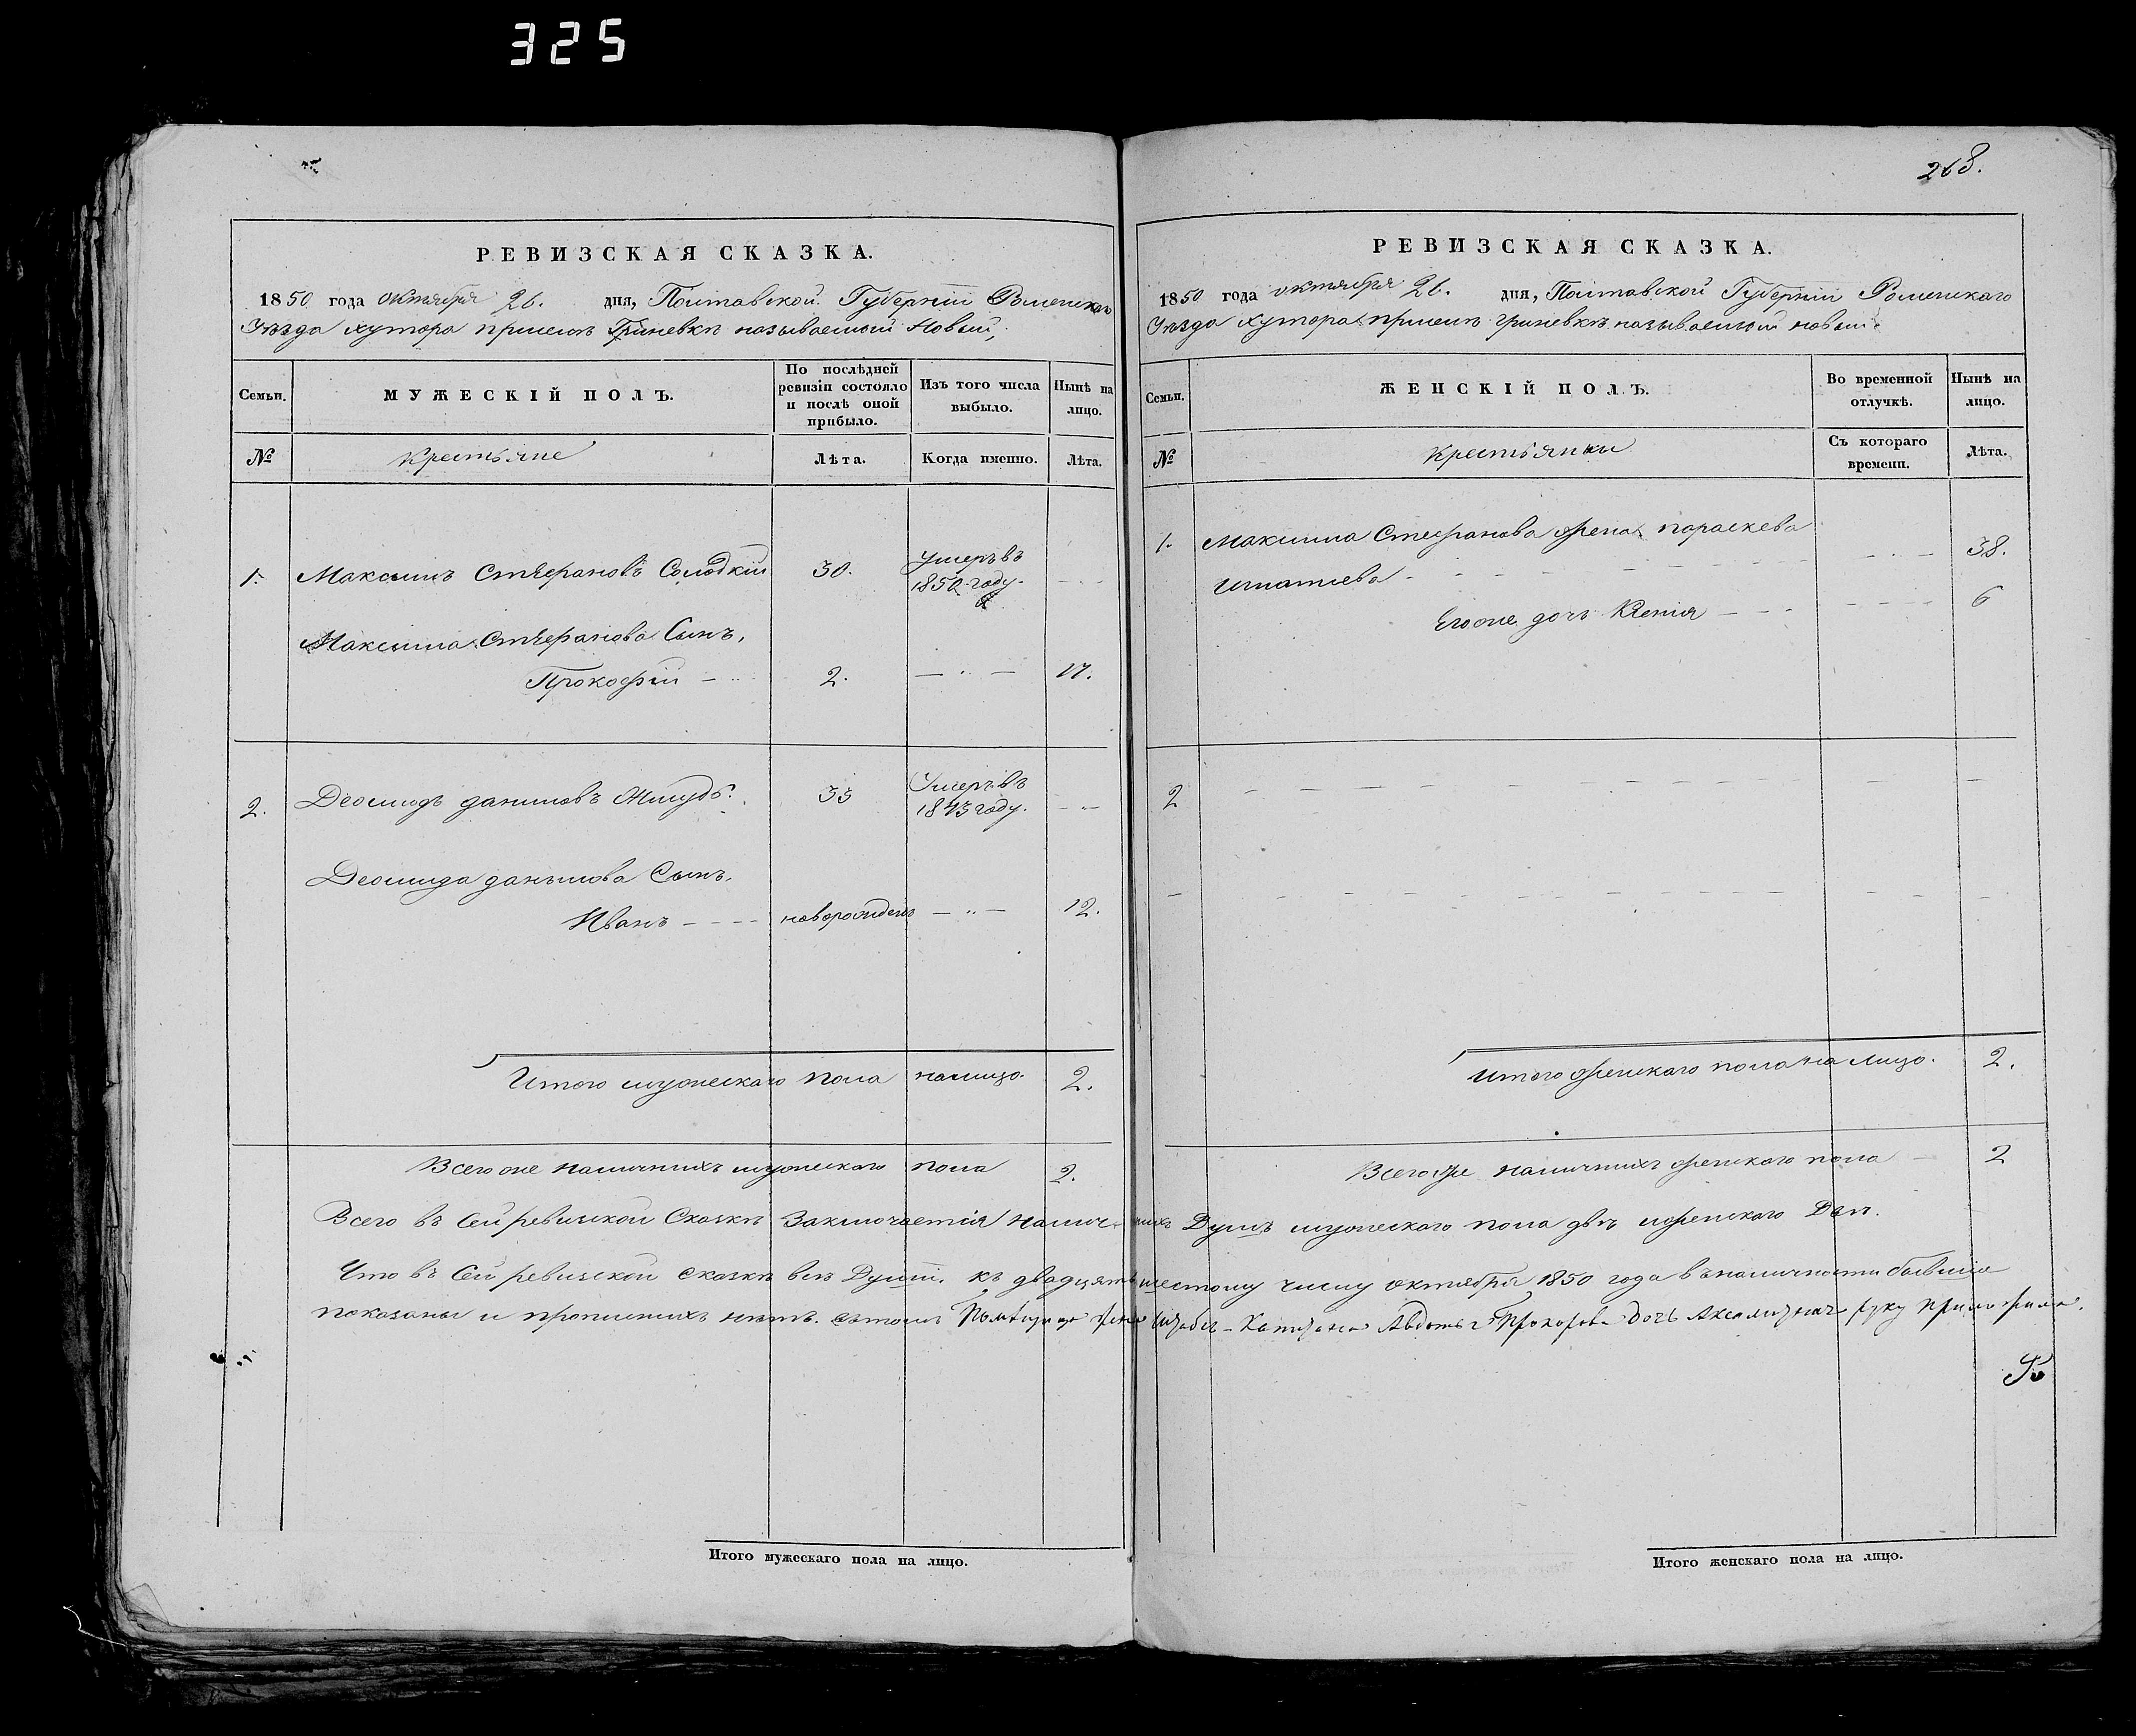 325
268.
РЕВИЗСКАЯ СКАЗКА.
1850 года октября 26. дня, Полтавской Губерніи Роменскаго
Уѣзда хутора при селѣ Гриневкѣ называемой Новый,
Семьи.
МУЖЕСКІЙ ПОЛЪ.
По послѣдней ревизіи состояло и послѣ оной прибыло.
Изъ того числа выбыло.
Нынѣ на лицо.
№
Крестьяне
Лѣта.
Когда именно.
Лѣта.
1. Максимъ Стефановъ Солодкій 30. Умеръ въ
1850 году.
Максима Стефанова Сынъ,
Прокофій 2. 17.
2. Деомидъ Даниловъ 33 Умеръ въ
1843 году.
Деомида Данилова Сынъ,
Иванъ новорожденъ 12.
Итого мужескаго пола налицо. 2.
Всего же наличнихъ мужескаго пола 2.
РЕВИЗСКАЯ СКАЗКА.
1850 года октября 26. дня, Полтавской Губерніи Роменскаго
Уѣзда хутора при селѣ Гриневкѣ называемой новый
Семьи.
ЖЕНСКІЙ ПОЛЪ.
Во временной отлучкѣ.
Нынѣ на лицо.
№
Крестьянки
Съ котораго времени.
Лѣта.
1. Максима Стефанова жена Параскева
Игнатиева 38.
Егоже дочь Ксенія 6
2
Итого женскаго пола на лицо. 2.
Всего же наличнихъ женскаго пола 2
Всего въ Сей ревизкой Сказкѣ Заключается наличнихъ Душъ мужескаго пола двѣ и женскаго Двѣ.
Что въ Сей ревизской сказкѣ всѣ Души, къ двадцять шестому числу октября 1850 года въ наличности бывшіе
показаны и прописнихъ нѣтъ. въ томъ Помѣщица жена Штабсъ-Капитана Авдотья Прохорова дочь руку приложила.
Итого мужескаго пола на лицо.
Итого женскаго пола на лицо.